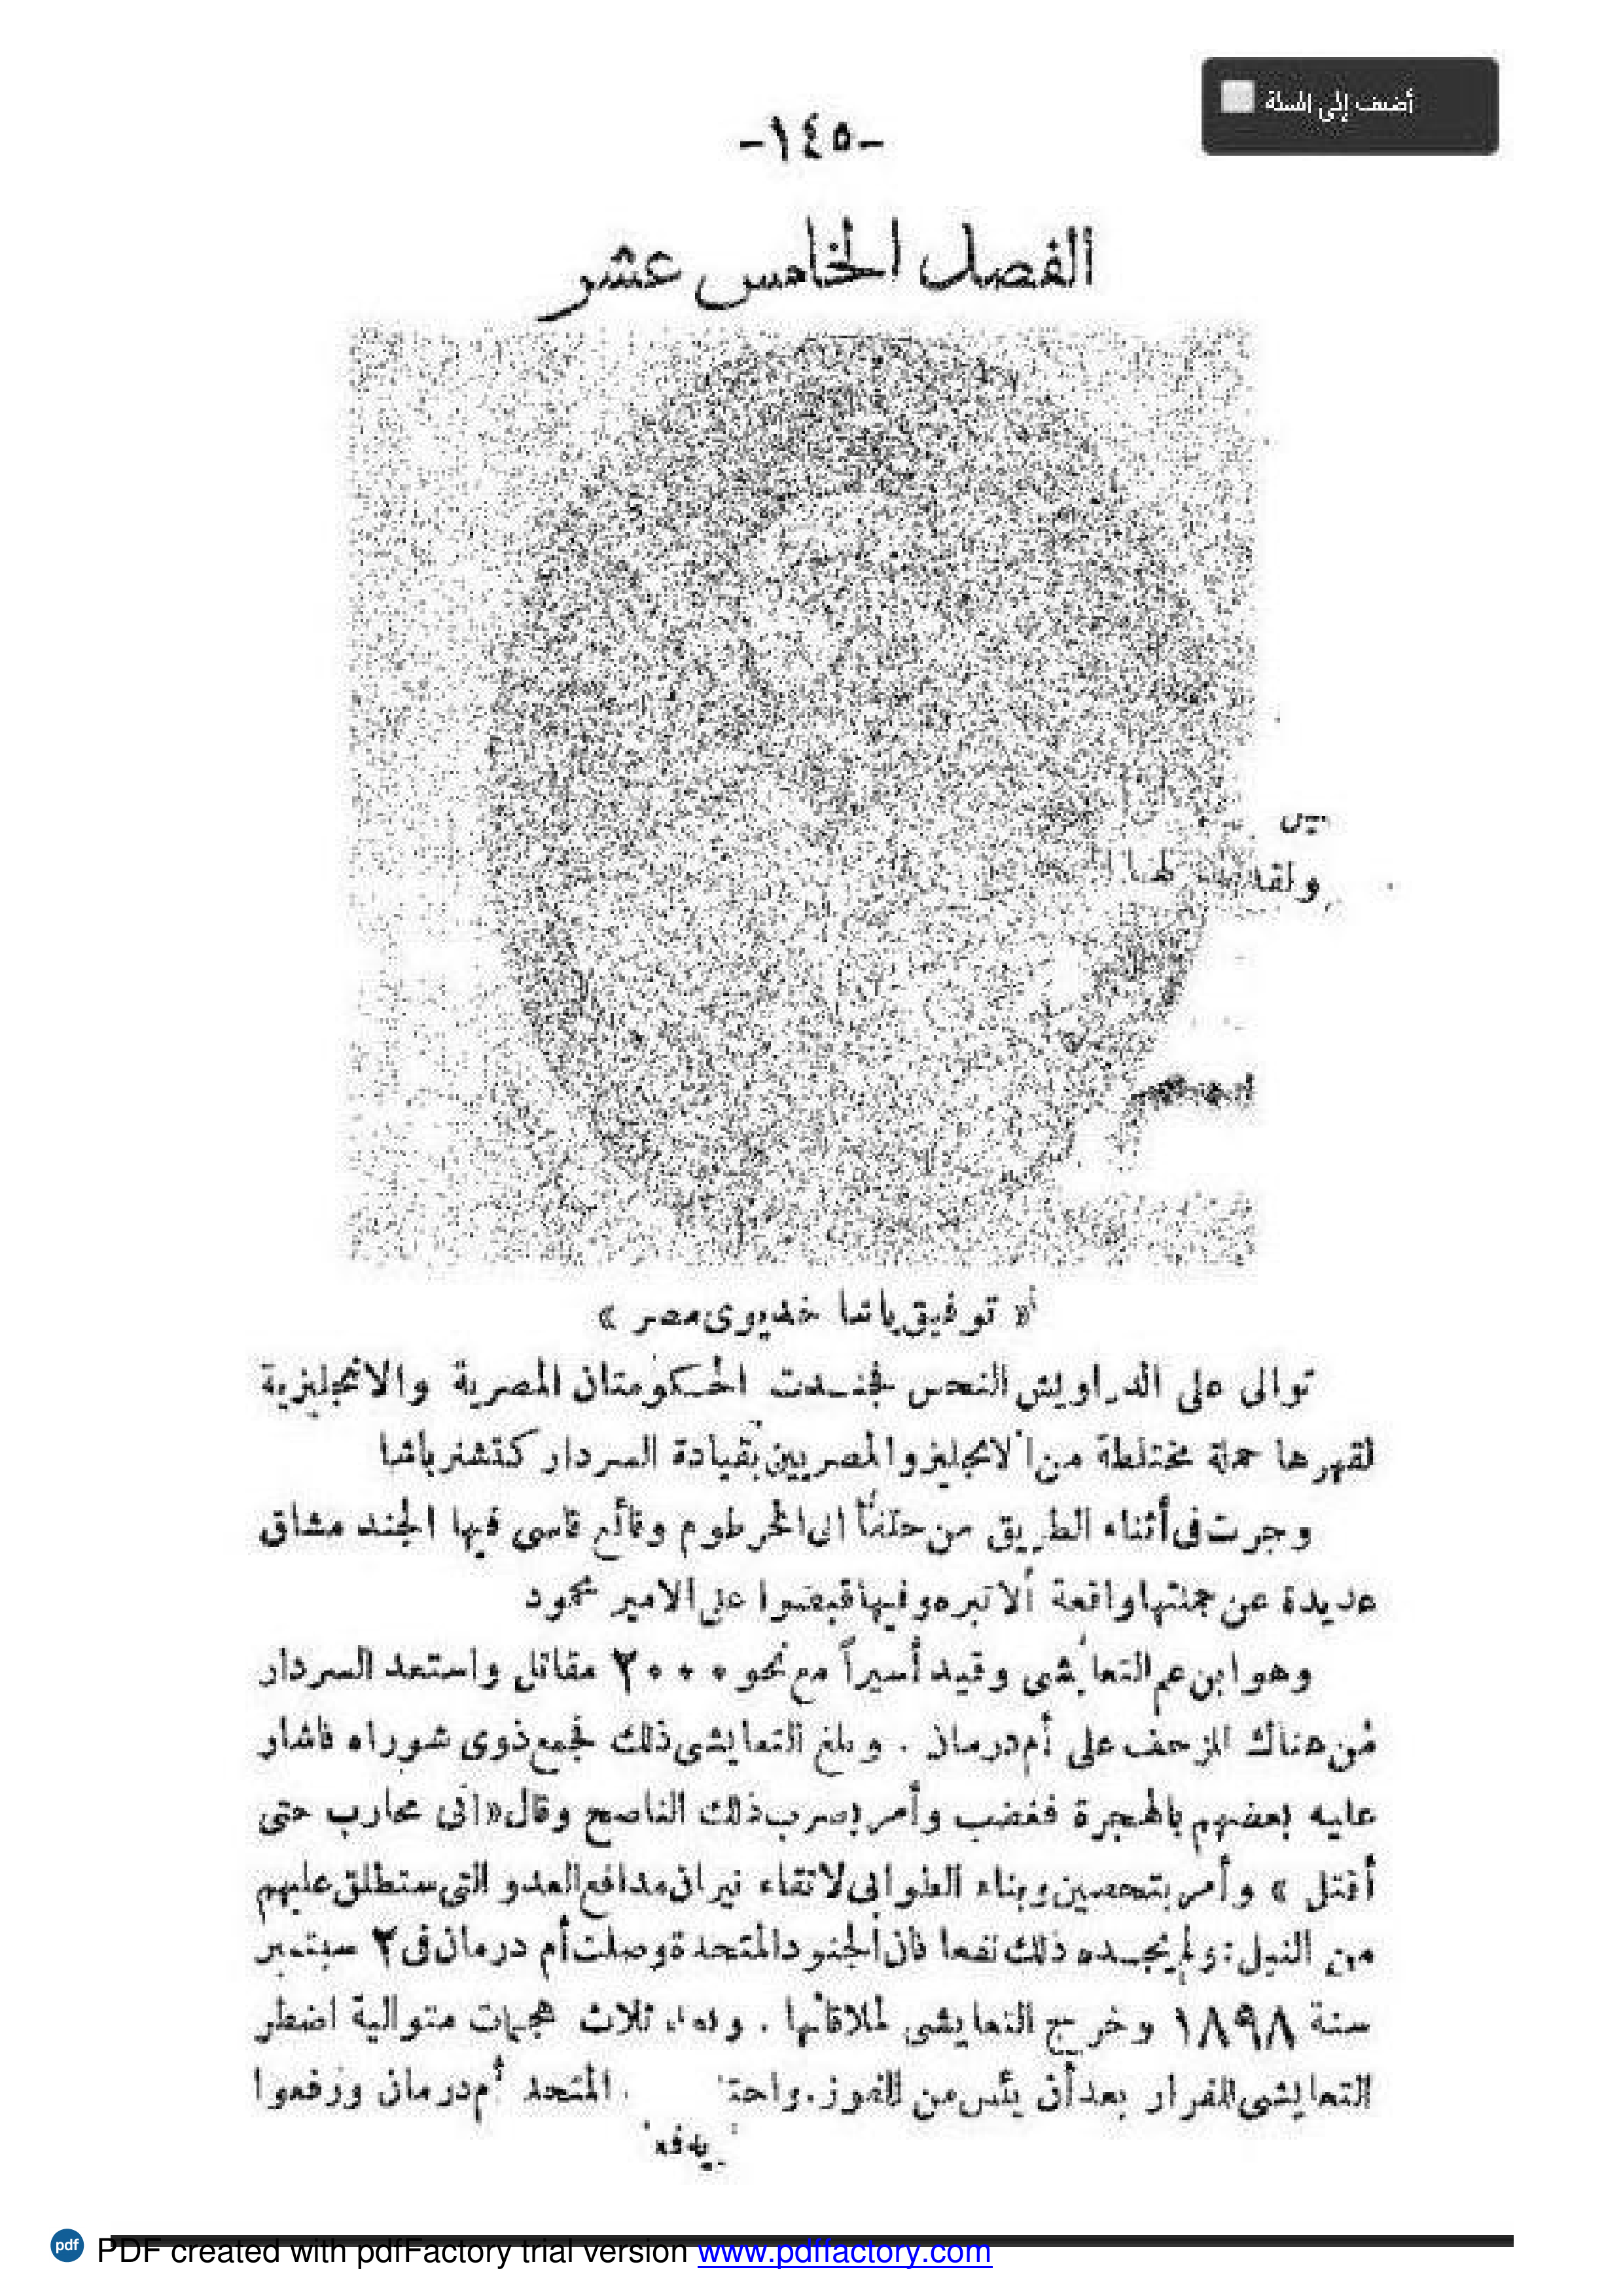 أضف إلى السلة
-١٤٥-
الفصل الخامس عشر
ولقد
« توفيق باشا خديوى مصر »
توالى على الدراويش النحس فجندت الحكومتان المصرية والانجليزية
لقهرها حملة مختلطة من الانجليز والمصريين بقيادة السردار كتشنر باشا
وجرت فى أثناء الطريق من حلفا الى الخرطوم وقائع قاسى فيها الجند مشاق
عديدة عن جملتها واقعة الاتبره وفيها قبضوا على الامير محمود
وهو ابن عم التعايشى وقيد أسيراً مع نحو ٢٠٠٠ مقاتل واستعد السردار
من هناك للزحف على أم درمان . وبلغ التعايشى ذلك فجمع ذوى شوراه فاشار
عليه بعضهم بالهجرة فغضب وأمر بضرب ذلك الناصح وقال «انى محارب حتى
أقتل » وأمر بتحصين وبناء الطوابى لاتقاء نيران مدافع العدو التى ستطلق عليهم
من النيل : ولم يجده ذلك نفعا فان الجنود المتحدة وصلت أم درمان فى ٢ سبتمبر
سنة ١٨٩٨ وخرج التعايشى لملاقاتها . ثلاث هجمات متوالية اضطر
التعايشى للفرار بعد أن يئس من الفوز . المتحد أم درمان ورفعوا
PDF created with pdfFactory trial version www.pdffactory.com